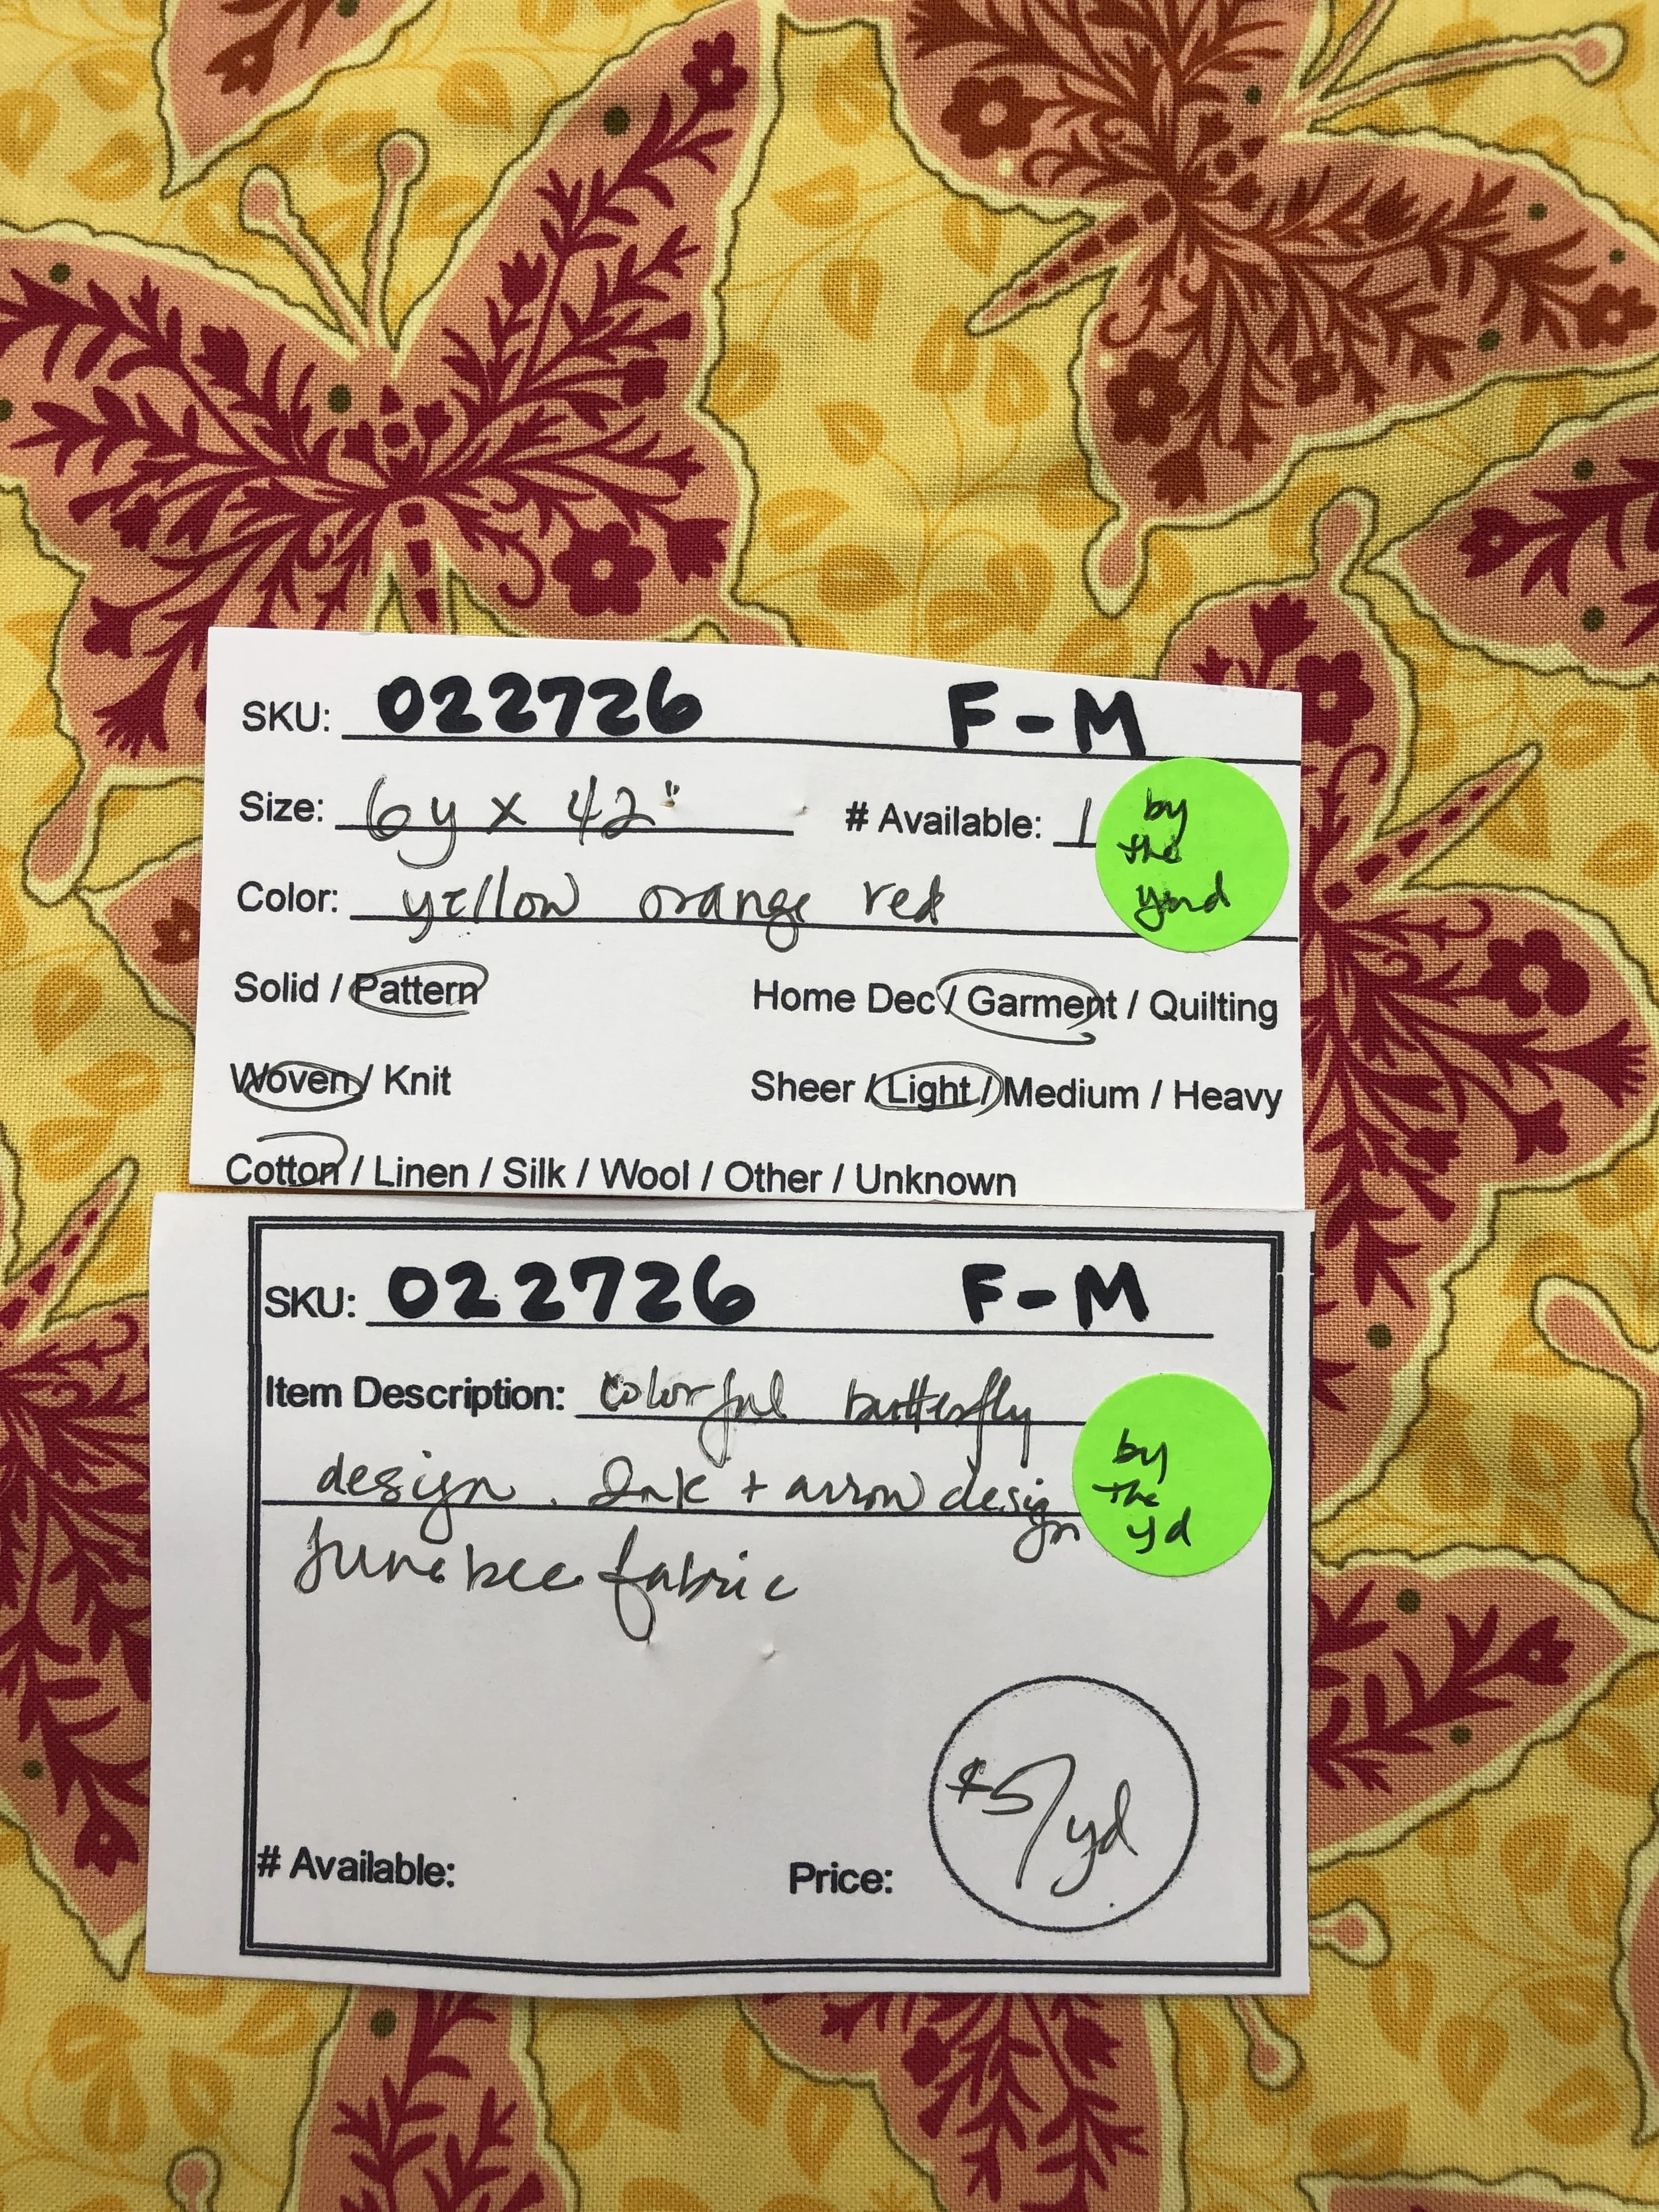 SKU: 022726 F-M
Size: 6y x 42" # Available: 1
by
the
yard
Color: yellow orange red
Solid / Pattern Home Dec / Garment / Quilting
Woven / Knit Sheer / Light / Medium / Heavy
Cotton / Linen / Silk / Wool / Other / Unknown
SKU: 022726 F-M
Item Description: colorful butterfly
design. Ink + arrow design
by
the
yd
Junebee fabric
$5/yd
# Available: Price: